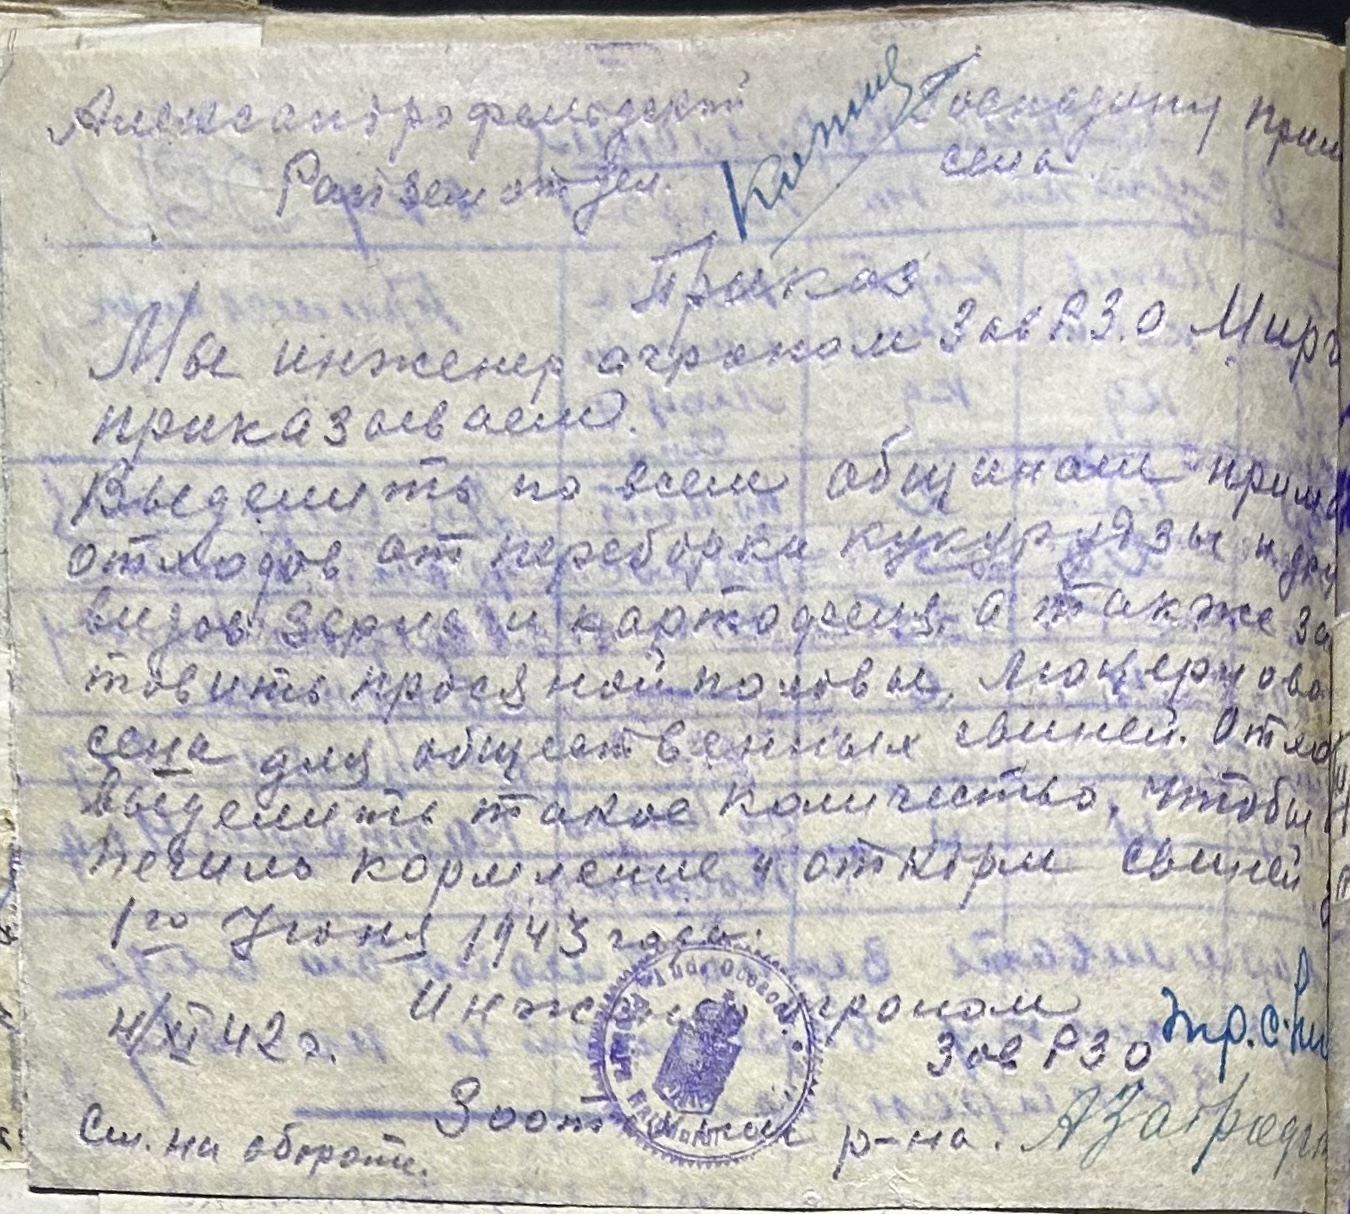 Александрофельдский
Райземотдел.
Господину прим
села
Приказ
Мы инженер агроном Зав Р.З.О Мирг
приказываем.
Выделить по всем общинам прима
отходов от переборки кукурудзы и дру
видов зерна и картофеля, а также за
товить просяной половы, люцерново
сена для общественных свиней. Отхо
выделить такое количество, чтобы
печить кормление и откорм свиней
1го Июня 1943 года.
Инженер агроном
4/XI 42 г.
Зав РЗО
р-на.
См. на обороте.